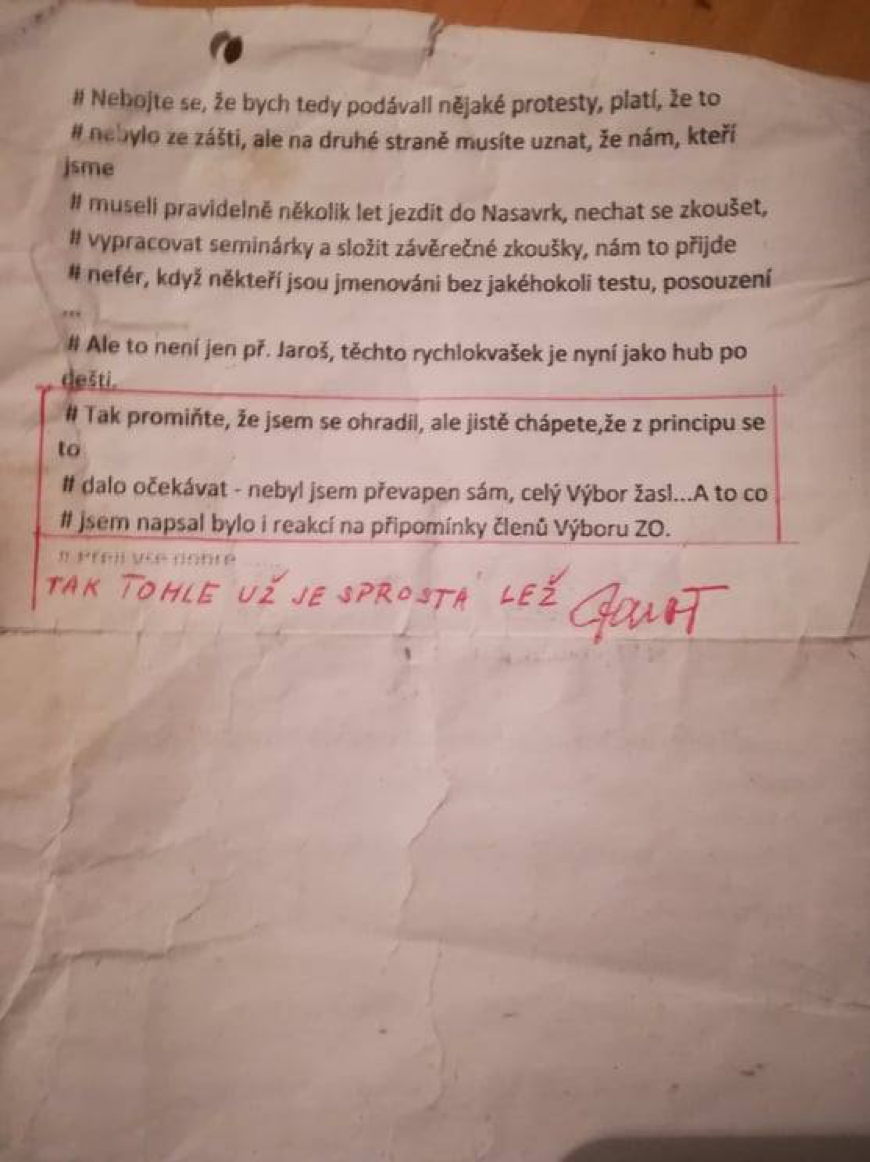 # Nebojte se, že bych tedy podávall nějaké protesty, platí, že to
# nebylo ze zášti, ale na druhé straně musíte uznat, že nám, kteří
jsme
# museli pravidelně několik let jezdit do Nasavrk, nechat se zkoušet,
# vypracovat seminárky a složit závěrečné zkoušky, nám to přijde
# nefér, když někteří jsou jmenováni bez jakéhokoli testu, posouzení
...
# Ale to není jen př. Jaroš, těchto rychlokvašek je nyní jako hub po
dešti.
# Tak promiňte, že jsem se ohradil, ale jistě chápete,že z principu se
to
# dalo očekávat - nebyl jsem převapen sám, celý Výbor žasl...A to co
# jsem napsal bylo i reakcí na připomínky členů Výboru ZO.
# Přeji vše dobré
TAK TOHLE UŽ JE SPROSTÁ LEŽ